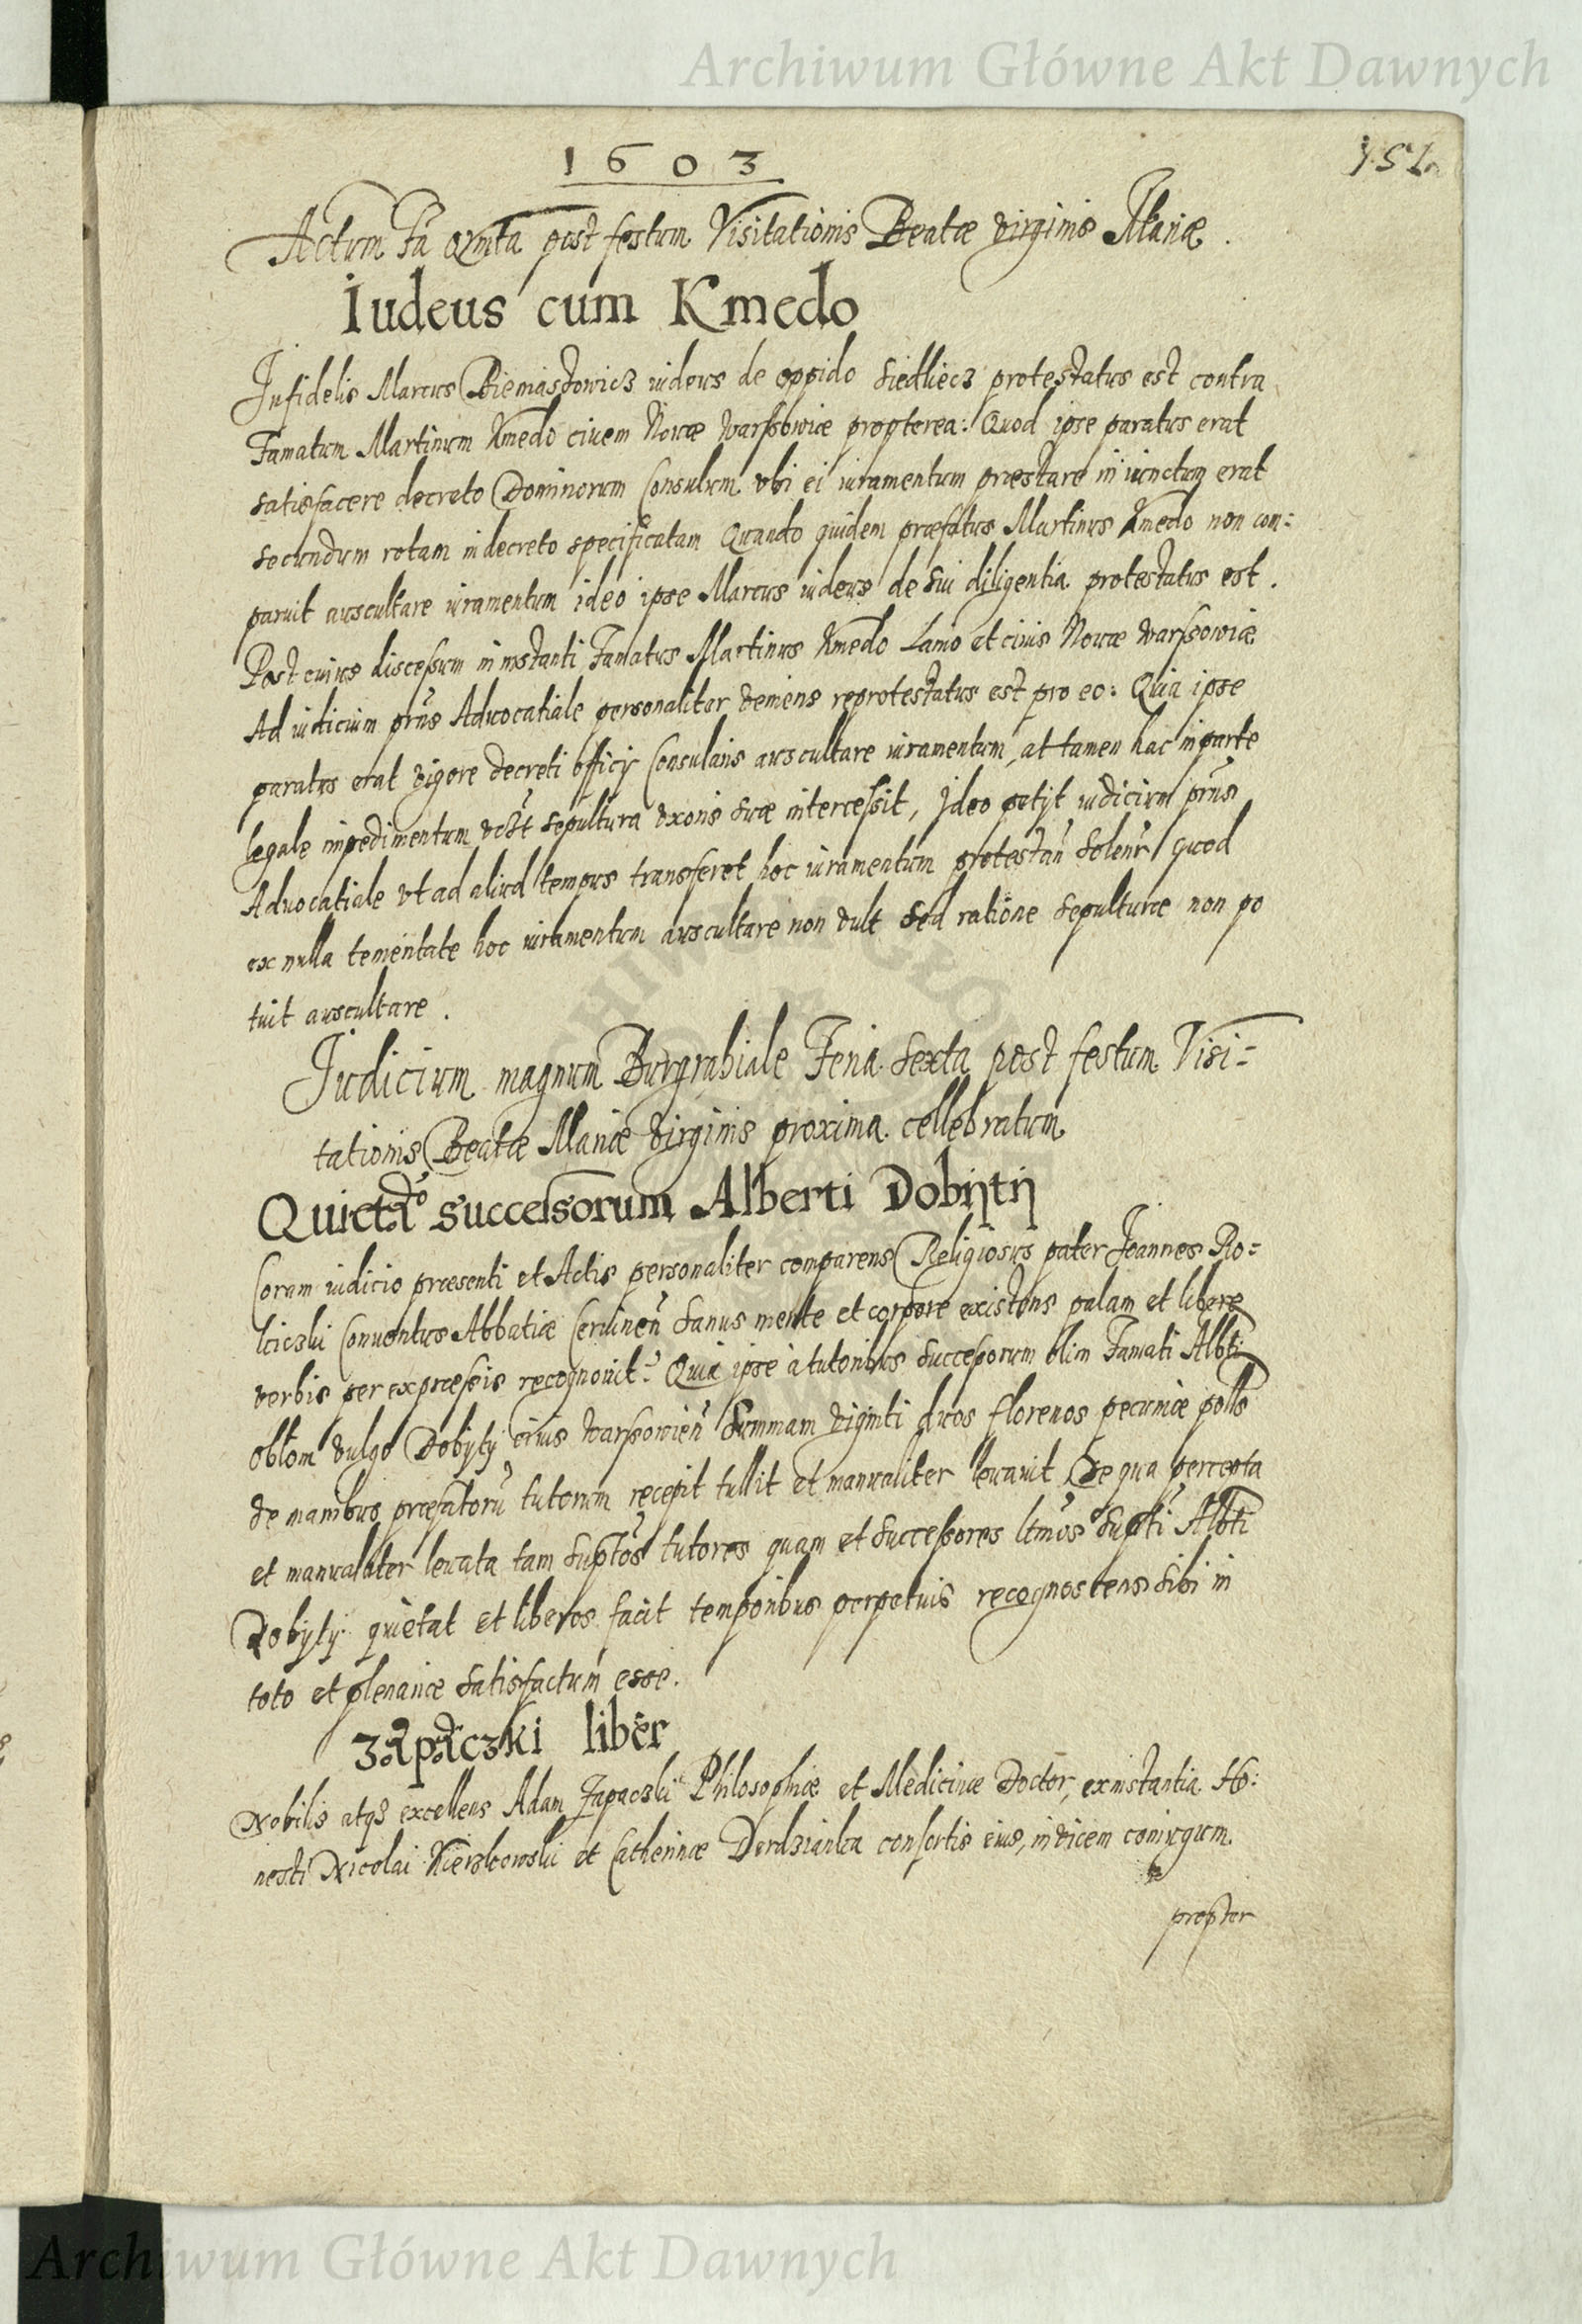 Archiwum Główne Akt Dawnych
1603
151
Actum fa quinta post festum Visitationis Beatæ virginis Mariæ.
Iudeus cum Kmedo
Infidelis Marcus iudeus de oppido Siedliecz protestatus est contra
Famatum Martinum Kmedo civem Novæ Warssowiæ propterea: Quod ipse paratus erat
satisfacere decreto Dominorum Consulum vbi ei iuramentum præstare iniunctum erat
secundum rotam in decreto specificatam Quando quidem præfatus Martinus Kmedo non com:
paruit auscultare iuramentum ideo ipse Marcus iudeus de sui diligentia protestatus est.
Post cuius discessum in instanti Famatus Martinus Kmedo Lanio et civis Novæ Warssowiæ
Ad iudicium prñs Advocatiale personaliter veniens reprotestatus est pro eo: Quia ipse
paratus erat vigore decreti officij Consularis auscultare iuramentum, at tamen hac in parte
legale impedimentum sepultura vxoris suæ intercessit, Ideo petijt iudicium prñs
Advocatiale vt ad aliud tempus transferet hoc iuramentum protestan̄ solenr̄ quod
ex nulla temeritate hoc iuramentum auscultare non vult sed ratione sepulturæ non po
tuit auscultare.
Judicium magnum Burgrabiale Feria sexta post festum Visi=
tationis Beatæ Mariæ virginis proxima cellebratum
Quictao successorum Alberti Dobijtij
Coram iudicio præsenti et Actis personaliter comparens Religiosus pater Joannes Ro=
kiczki Conventus Abbatiæ Cervinen̄ sanus mente et corpore existens palam et libere
verbis per expræssis recognovit: Quia ipse à tutoribus successorum olim Famati Albti
vulgo Dobyty civis Warssowien̄ summam viginti duos florenos pecuniæ polls
de manibus præfatorū tutorum recepit tullit et manualiter levavit De qua percepta
et manualiter levata tam suptos tutores quam et successores ltmos supti Albti
Dobyty quietat et liberos facit temporibus perpetuis recognoscens sibi in
toto et plenariæ satisfactum esse.
Zapaczki liber
Nobilis atq3 excellens Adam Zapaczki Philosophiæ et Medicinæ Doctor, ex instantia Ho:
nesti Nicolai Kierzkowski et Catherinæ Dordzianka consortis eius, invicem coniugum.
propter
Archiwum Główne Akt Dawnych